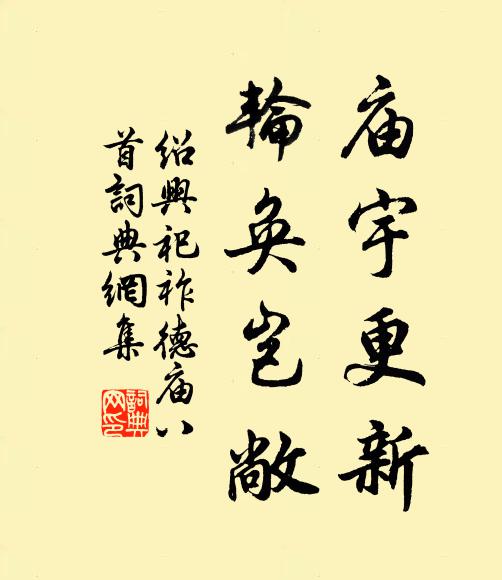 庙宇更新
輪奂岂敞
紹興祀祚德庙八
首詞典網集
詞典
网印